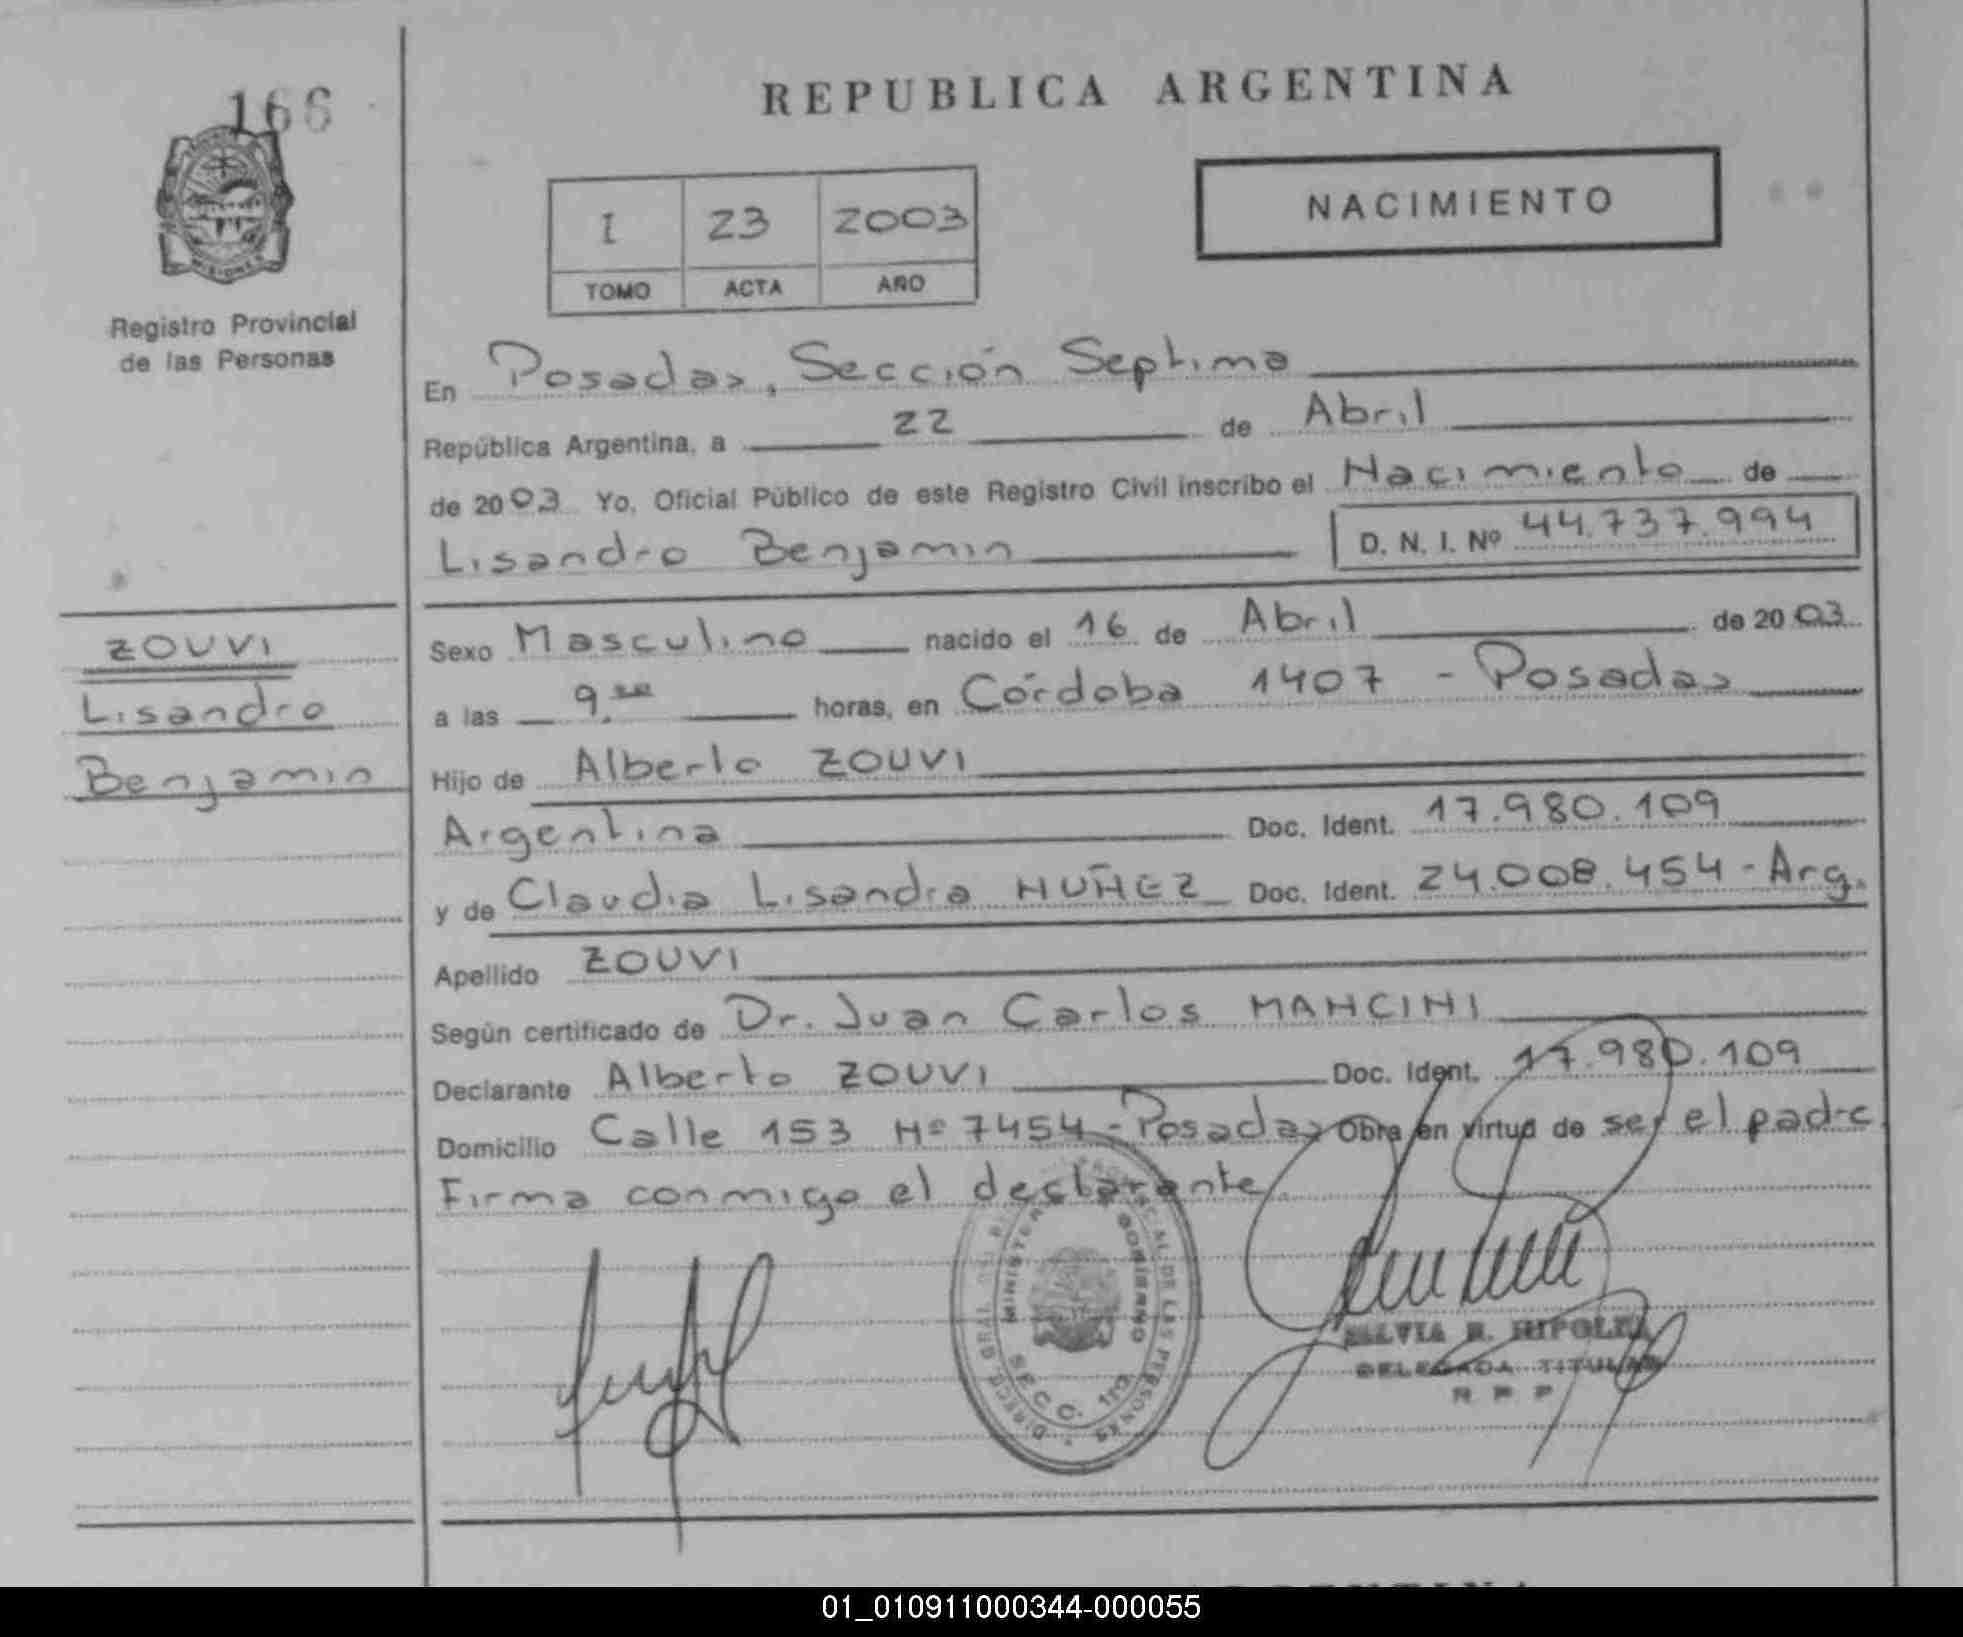 166
MISIONES
Registro Provincial
de las Personas
REPUBLICA ARGENTINA
I 23 2003
TOMO ACTA AÑO
NACIMIENTO
En Posadas, Sección Septima
República Argentina, a 22 de Abril
de 2003 Yo, Oficial Público de este Registro Civil inscribo el Nacimiento de
Lisandro Benjamin D. N. I. Nº 44.737.994
ZOUVI
Lisandro
Benjamin
Sexo Masculino nacido el 16 de Abril de 2003
a las 9. horas, en Córdoba 1407 - Posadas
Hijo de Alberto ZOUVI
Argentina Doc. Ident. 17.980.109
y de Claudia Lisandra NUÑEZ Doc. Ident. 24.008.454 - Arg.
Apellido ZOUVI
Según certificado de Dr. Juan Carlos MANCINI
Declarante Alberto ZOUVI Doc. Ident. 17.980.109
Domicilio Calle 153 Nº 7454 - Posadas Obra en virtud de ser el padre
Firma conmigo el declarante
MINISTERIO GOBIERNO
DE LAS PERSONAS
SILVIA R. HIPOLITO
DELEGADA TITULAR
R P P
01_010911000344-000055